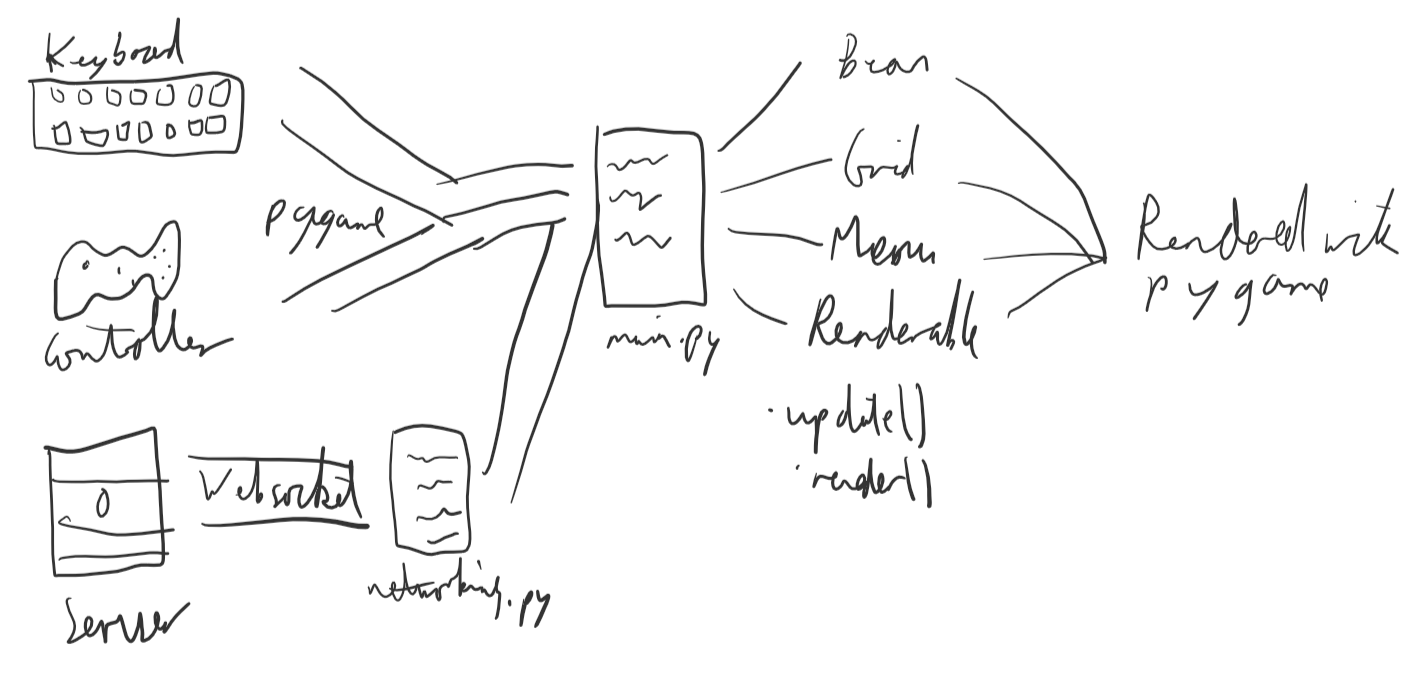 Keyboard
pygame
Controller
Server
Websocket
networking.py
main.py
Bean
Grid
Menu
Renderable
·update()
·render()
Rendered with
pygame